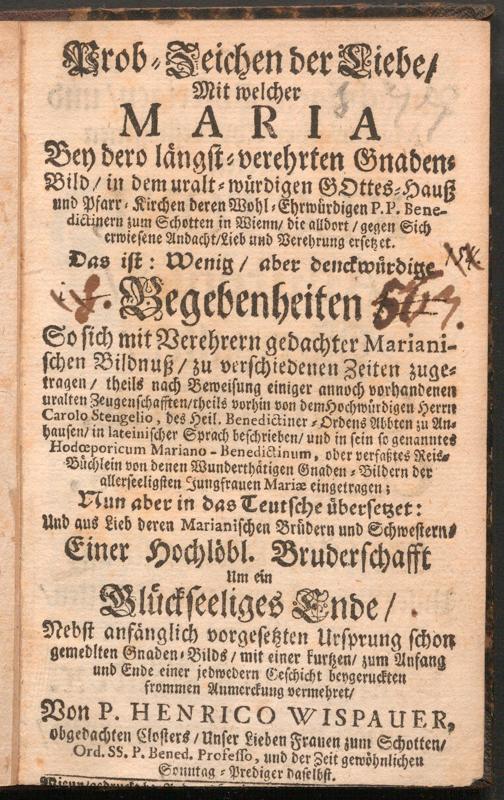 Prob-Zeichen der Liebe/
Mit welcher
MARIA
Bey dero längst-verehrten Gnaden-
Bild/ in dem uralt-würdigen GOttes-Hauß
und Pfarr-Kirchen deren Wohl-Ehrwürdigen P.P. Bene-
dictinern zum Schotten in Wienn/ die alldort/ gegen Sich
erwiesene Andacht/Lieb und Verehrung ersetzet.
Das ist: Wenig/ aber denckwürdige
Begebenheiten
So sich mit Verehrern gedachter Mariani-
schen Bildnuß/ zu verschiedenen Zeiten zuge-
tragen/ theils nach Beweisung einiger annoch vorhandenen
uralten Zeugenschafften/theils vorhin von dem Hochwürdigen Herrn
Carolo Stengelio, des Heil. Benedictiner-Ordens Abbten zu An-
hausen/ in lateinischer Sprach beschrieben/ und in sein so genanntes
Hodœporicum Mariano-Benedictinum, oder verfaßtes Reis-
Büchlein von denen Wunderthätigen Gnaden-Bildern der
allerseeligsten Jungfrauen Mariæ eingetragen;
Nun aber in das Teutsche übersetzet:
Und aus Lieb deren Marianischen Brüdern und Schwestern/
Einer Hochlöbl. Bruderschafft
Um ein
Glückseeliges Ende/
Nebst anfänglich vorgesetzten Ursprung schon
gemedlten Gnaden-Bilds/ mit einer kurtzen/ zum Anfang
und Ende einer jedwedern Geschicht beygeruckten
frommen Anmerckung vermehret/
Von P. HENRICO WISPAUER,
obgedachten Closters/ Unser Lieben Frauen zum Schotten/
Ord. SS. P. Bened. Professo, und der Zeit gewöhnlichen
Sonntag-Prediger daselbst.